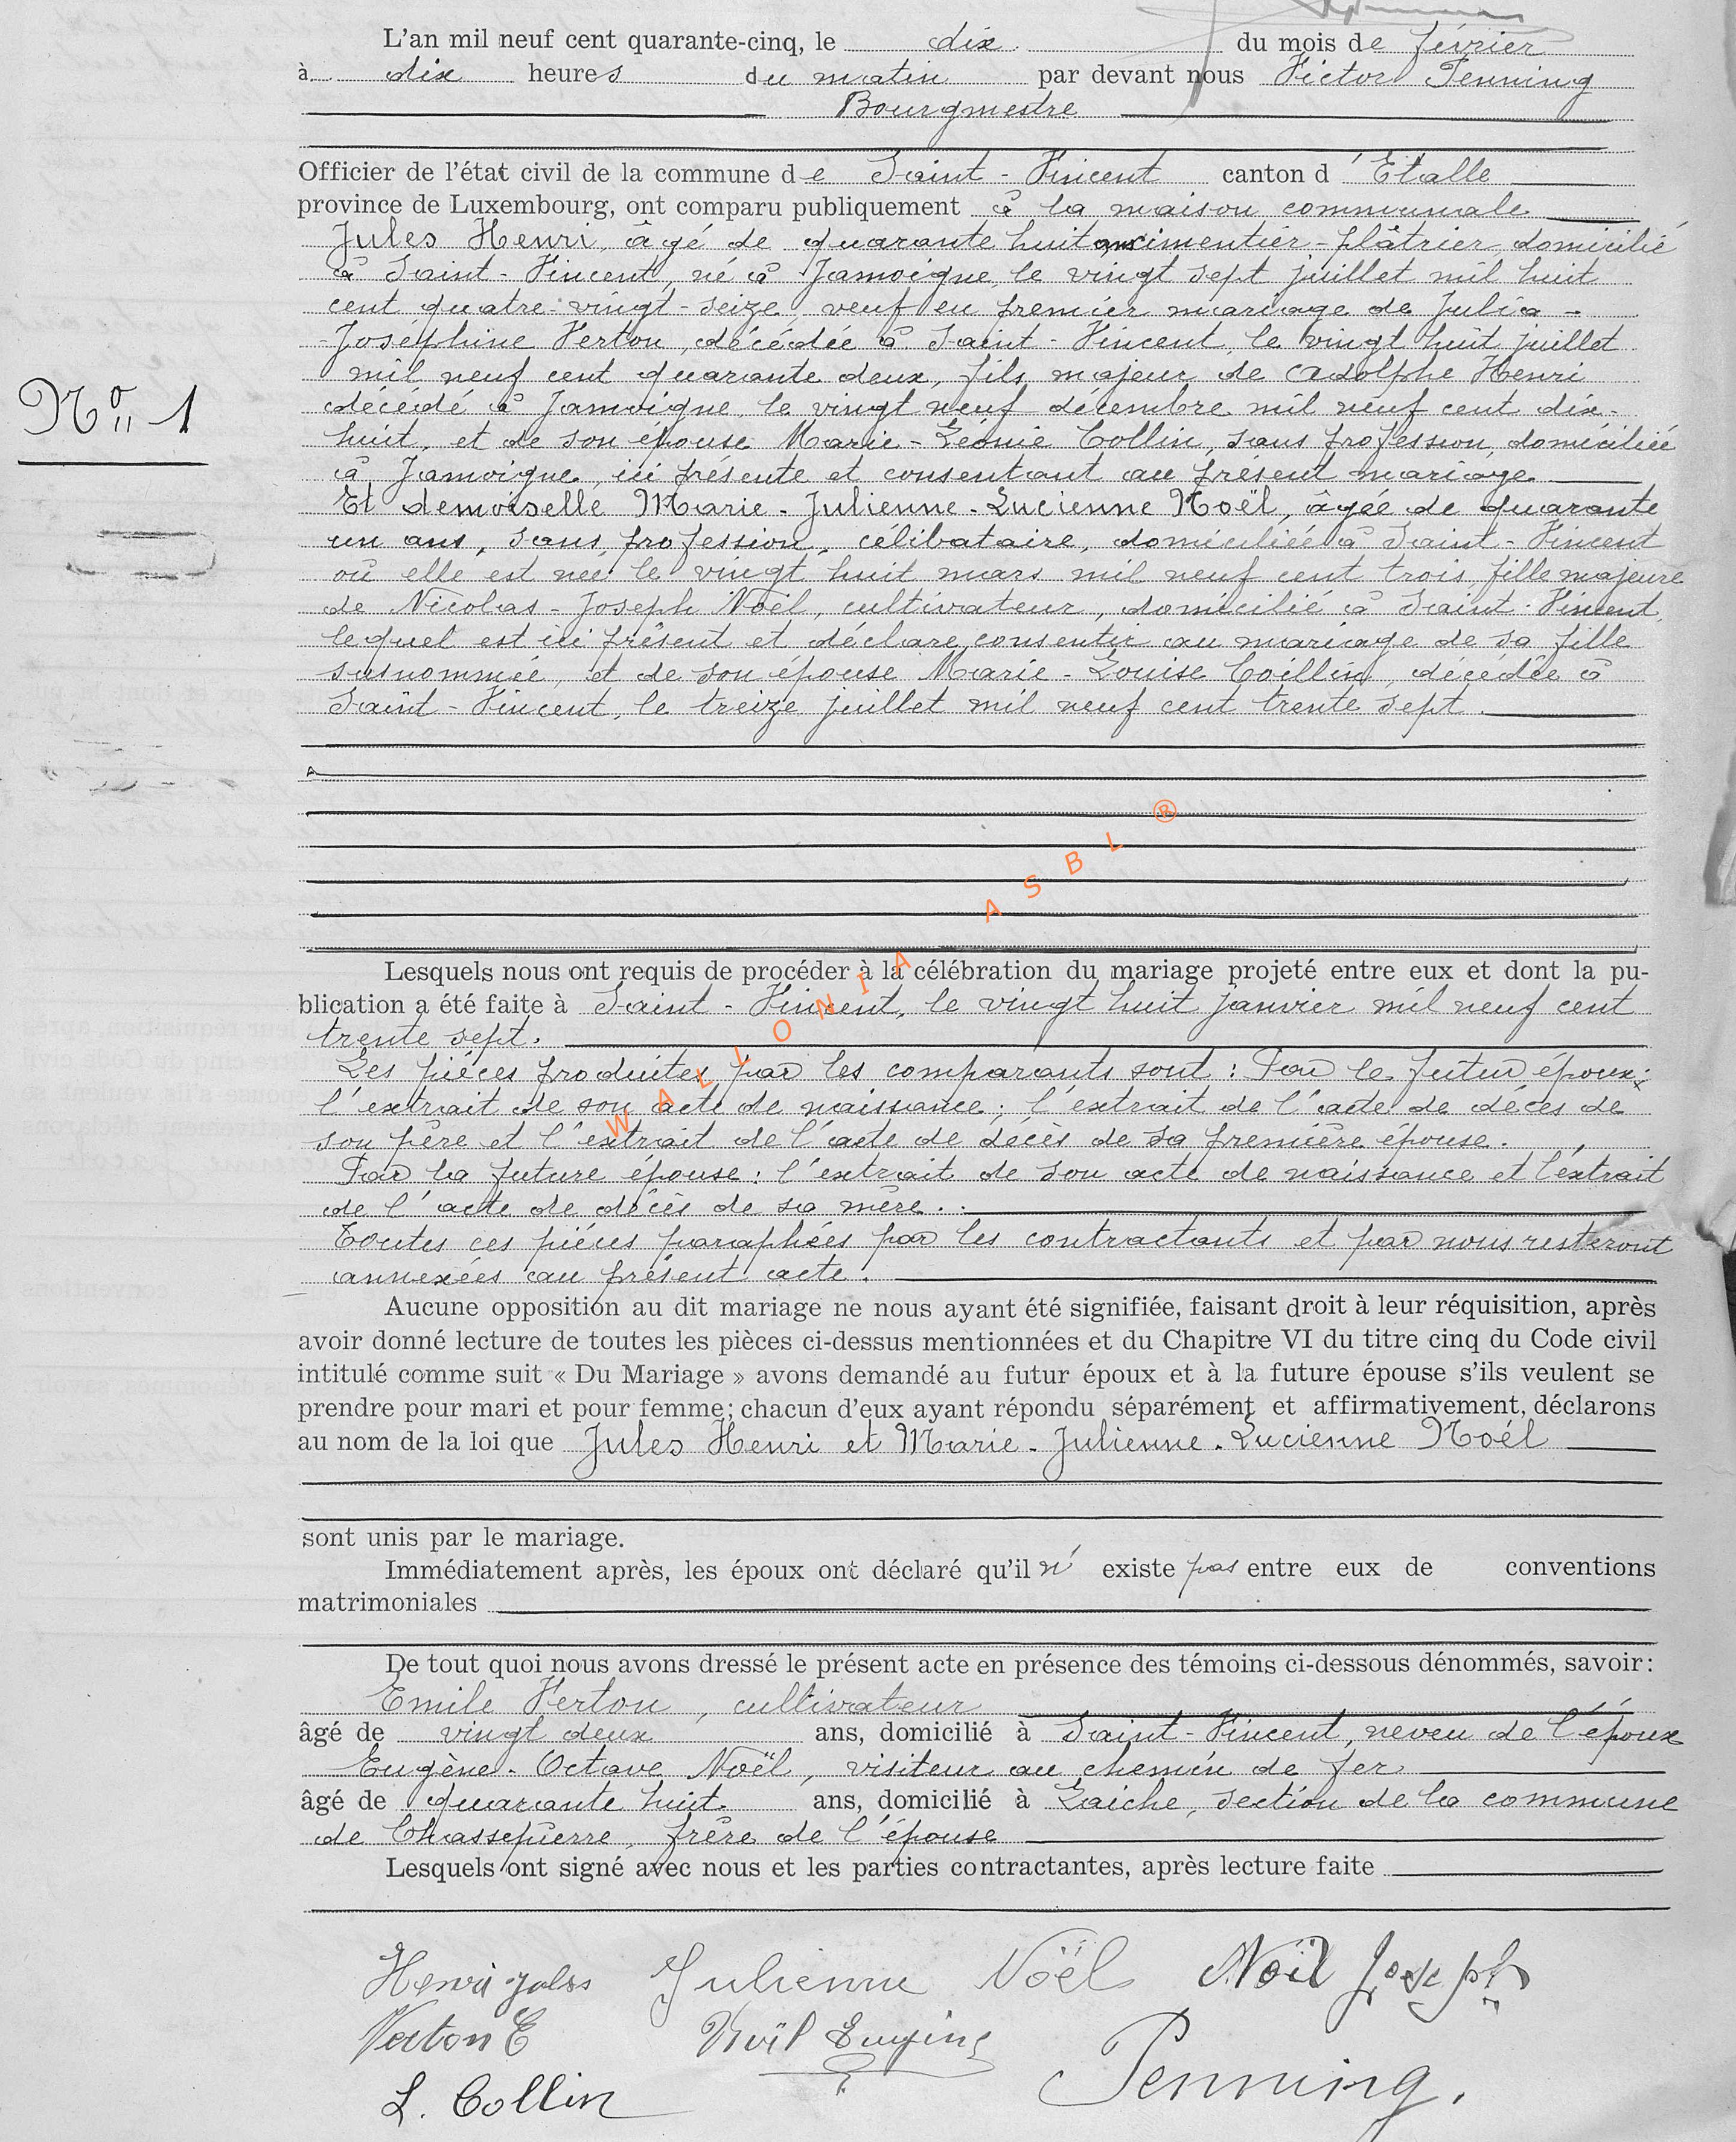 L'an mil neuf cent quarante-cinq, le dix du mois de février
à dix heures du matin par devant nous Victor Penning
Bourgmestre
Officier de l'état civil de la commune de Saint-Vincent canton d'Etalle
province de Luxembourg, ont comparu publiquement à la maison communale
Jules Henri, âgé de quarante huit ans cimentier-plâtrier, domicilié
à Saint-Vincent, né à Jamoigne, le vingt sept juillet mil huit
cent quatre-vingt-seize veuf en premier mariage de Julia-
Joséphine Verton, décédée à Saint-Vincent, le vingt huit juillet
N° 1
mil neuf cent quarante deux, fils majeur de Adolphe Henri
décédé à Jamoigne, le vingt neuf décembre mil neuf cent dix-
huit, et de son épouse Marie-Léonie Collin, sans profession, domiciliée
à Jamoigne, ici présente et consentant au présent mariage.
Et demoiselle Marie-Julienne-Lucienne Noël, âgée de quarante
un ans, sans profession, célibataire, domiciliée à Saint-Vincent
où elle est née le vingt huit mars mil neuf cent trois, fille majeure
de Nicolas-Joseph Noël, cultivateur, domicilié à Saint-Vincent,
lequel est ici présent et déclare consentir au mariage de sa fille
susnommée, et de son épouse Marie-Louise Coillin, décédée à
Saint-Vincent, le treize juillet mil neuf cent trente sept.
WALLONIA ASBL ®
Lesquels nous ont requis de procéder à la célébration du mariage projeté entre eux et dont la pu-
blication a été faite à Saint-Vincent, le vingt huit janvier mil neuf cent
trente sept.
Les pièces produites par les comparants sont : Par le futur époux:
l'extrait de son acte de naissance; l'extrait de l'acte de décès de
son père et l'extrait de l'acte de décès de sa première épouse.
Par la future épouse : l'extrait de son acte de naissance et l'extrait
de l'acte de décès de sa mère.
Toutes ces pièces paraphées par les contractants et par nous resteront
annexées au présent acte.
Aucune opposition au dit mariage ne nous ayant été signifiée, faisant droit à leur réquisition, après
avoir donné lecture de toutes les pièces ci-dessus mentionnées et du Chapitre VI du titre cinq du Code civil
intitulé comme suit « Du Mariage » avons demandé au futur époux et à la future épouse s'ils veulent se
prendre pour mari et pour femme; chacun d'eux ayant répondu séparément et affirmativement, déclarons
au nom de la loi que Jules Henri et Marie-Julienne-Lucienne Noël
sont unis par le mariage.
Immédiatement après, les époux ont déclaré qu'il n' existe pas entre eux de conventions
matrimoniales
De tout quoi nous avons dressé le présent acte en présence des témoins ci-dessous dénommés, savoir:
Emile Verton, cultivateur
âgé de vingt deux ans, domicilié à Saint-Vincent, neveu de l'époux
Eugène-Octave Noël, visiteur au chemin de fer
âgé de quarante huit. ans, domicilié à Laiche, section de la commune
de Chassepierre, frère de l'épouse
Lesquels ont signé avec nous et les parties contractantes, après lecture faite
Henri Jules Julienne Noël Noël Joseph
Verton E Noël Eugène
L. Collin Penning.